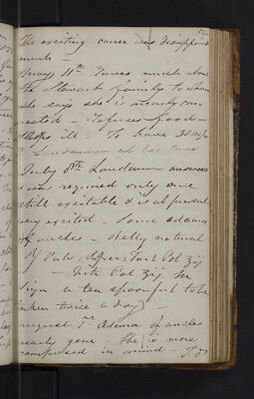 The exciting cause was disappoint
ments –
May 11th Turns much about
the Stewart family to whom
she says she is nearly con
nected – refuses food –
sleeps ill – To have
Laudanum at bed time
July 8th Laudanum
was required only once
still excitable & is at present
very excited – Some edema
of ancles – Belly natural
Pulv Tart Pot
Nit Pot
Sign a tea spoonful to be
taken twice a day –
August 1st Edema of ancles
nearly gone She is more
composed in mind